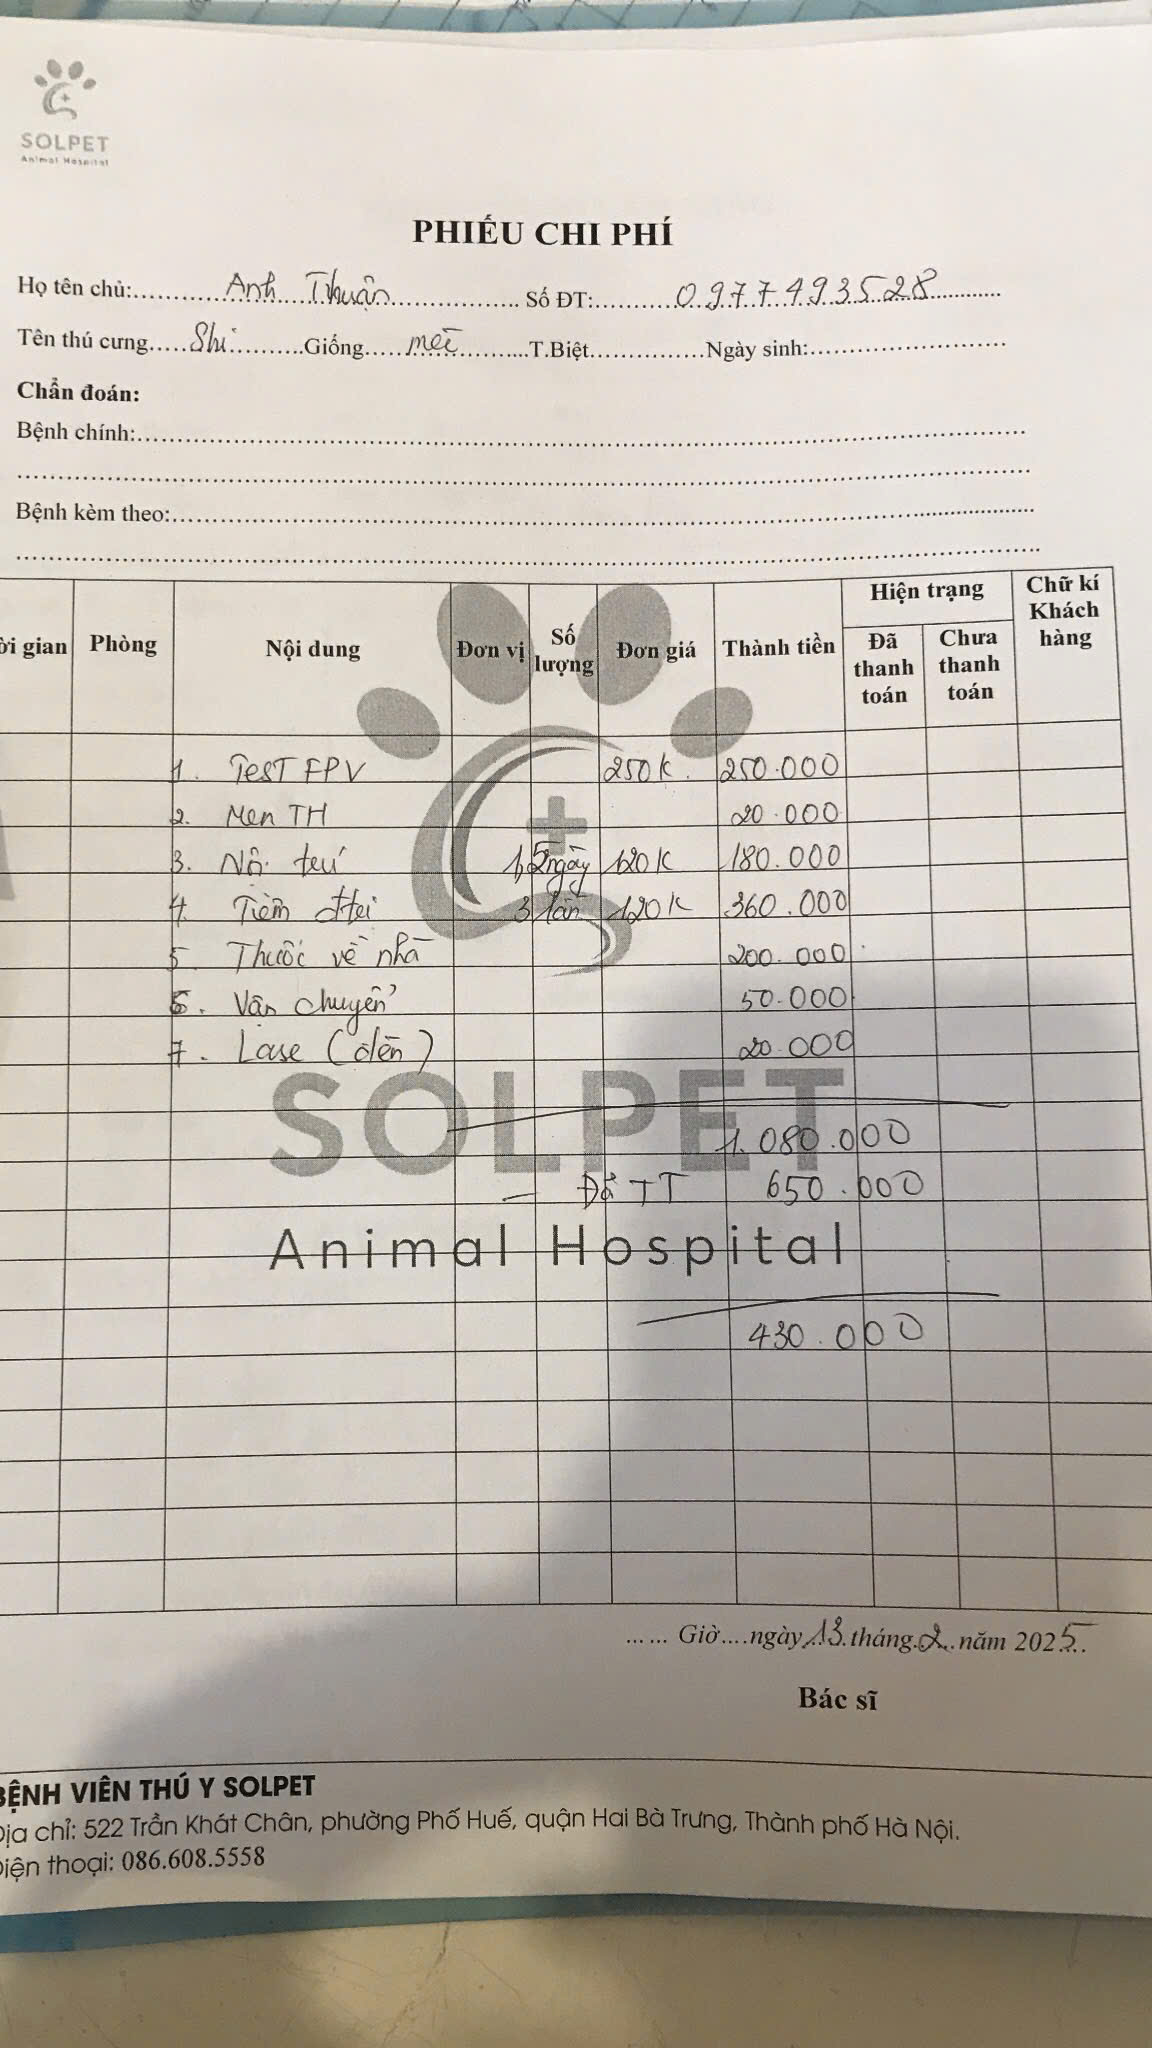 SOLPET
Animal Hospital
PHIẾU CHI PHÍ
Họ tên chủ: Anh Thuận Số ĐT: 0977493528
Tên thú cưng Shi Giống mèo T.Biệt Ngày sinh:
Chẩn đoán:
Bệnh chính:
Bệnh kèm theo:
ời gian Phòng Nội dung Đơn vị Số lượng Đơn giá Thành tiền Hiện trạng Đã thanh toán Chưa thanh toán Chữ kí Khách hàng
1. Test FPV 250K. 250.000
2. Men TH 20.000
3. Nội trú 1,5 ngày 120K 180.000
4. Tiêm 3 lần 120K 360.000
5 Thuốc về nhà 200.000
6. Vận chuyển 50.000
7. Lase (đèn) 20.000
SOLPET
1.080.000
- Đã TT 650.000
Animal Hospital
430.000
... ... Giờ....ngày 13 tháng 2 năm 2025
Bác sĩ
BỆNH VIÊN THÚ Y SOLPET
Địa chỉ: 522 Trần Khát Chân, phường Phố Huế, quận Hai Bà Trưng, Thành phố Hà Nội.
Điện thoại: 086.608.5558